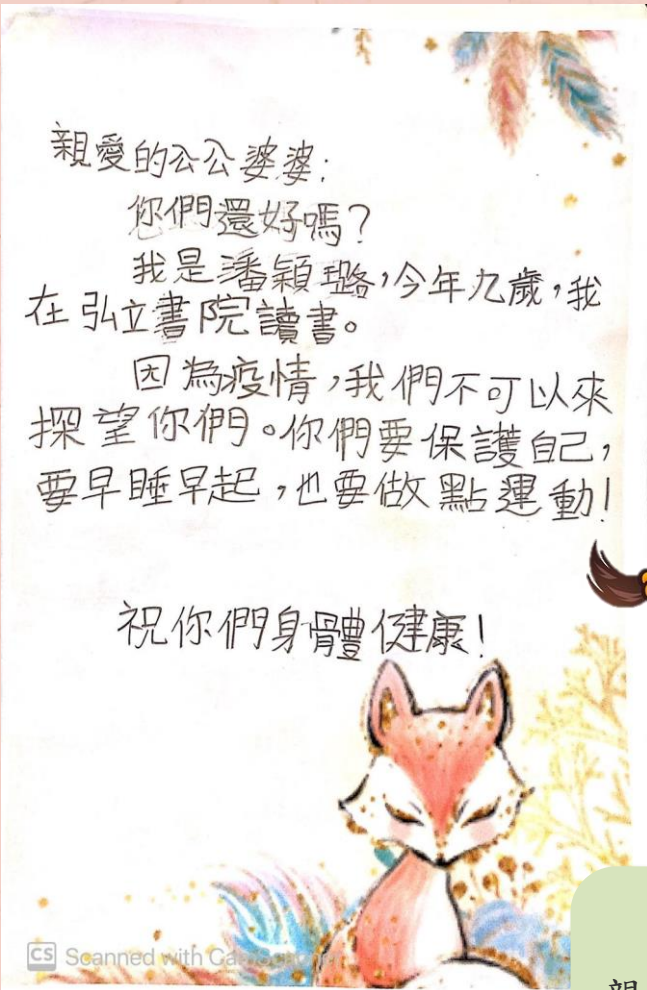 親愛的公公婆婆:
您們還好嗎?
我是潘穎璐,今年九歲,我
在弘立書院讀書。
因為疫情,我們不可以來
探望你們。你們要保護自己,
要早睡早起,也要做點運動!
祝你們身體健康!
CS Scanned with